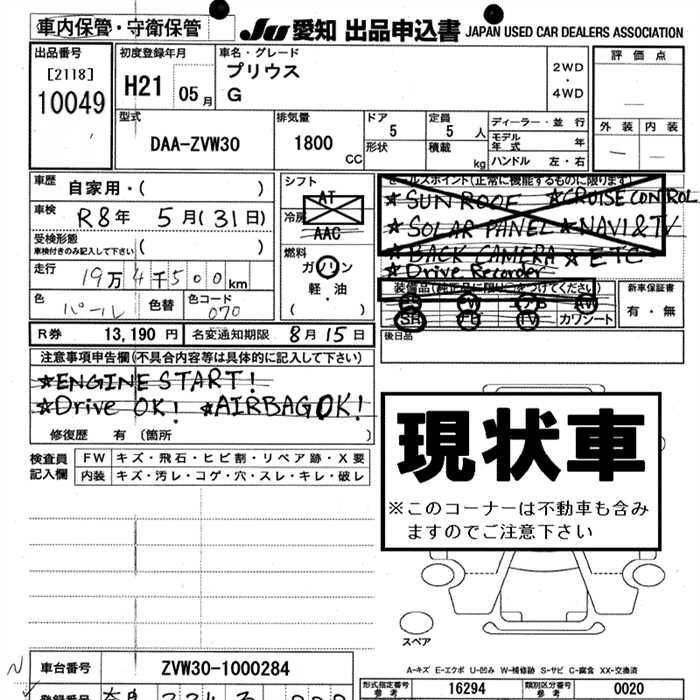 車内保管・守衛保管
JU 愛知 出品申込書 JAPAN USED CAR DEALERS ASSOCIATION
出品番号
[2118]
10049
初度登録年月
H21 05月
車名・グレード
プリウス
G
2WD
・
4WD
評価点
外装 内装
型式
DAA-ZVW30
排気量
1800
CC
ドア
5
形状
定員
5人
積載
kg
ディーラー・並行
モデル年式 年
ハンドル 左・右
車歴 自家用・( )
車検 R8年 5月(31日)
受検形態
車検付きのみ記入して下さい ( )
走行 19万4千500km
色 パール 色替 色コード 070
シフト
AT
冷房
AAC
燃料
ガソリン
軽・油
( )
セールスポイント(正常に機能するものに限ります)
★SUN ROOF ★CRUISE CONTROL
★SOLAR PANEL ★NAVI&TV
★BACK CAMERA ★ETC
★Drive Recorder
装備品(純正品に限り○をつけてください)
SR PS PW AB AW
SR TV カワシート
新車保証書
有・無
後日品
R券 13,190円 名変通知期限 8月15日
注意事項申告欄(不具合内容等は具体的に記入して下さい)
★ENGINE START!
★Drive OK! ★AIRBAG OK!
修復歴 有 〔箇所 〕
検査員記入欄
FW キズ・飛石・ヒビ割・リペア跡・X要
内装 キズ・汚レ・コゲ・穴・スレ・キレ・破レ
現状車
※このコーナーは不動車も含み
ますのでご注意下さい
スペア
A-キズ E-エクボ U-凹み W-補修跡 S-サビ C-腐食 XX-交換済
車台番号 ZVW30-1000284
形式指定番号 参考 16294 類別区分番号 参考 0020
登録番号 奈良